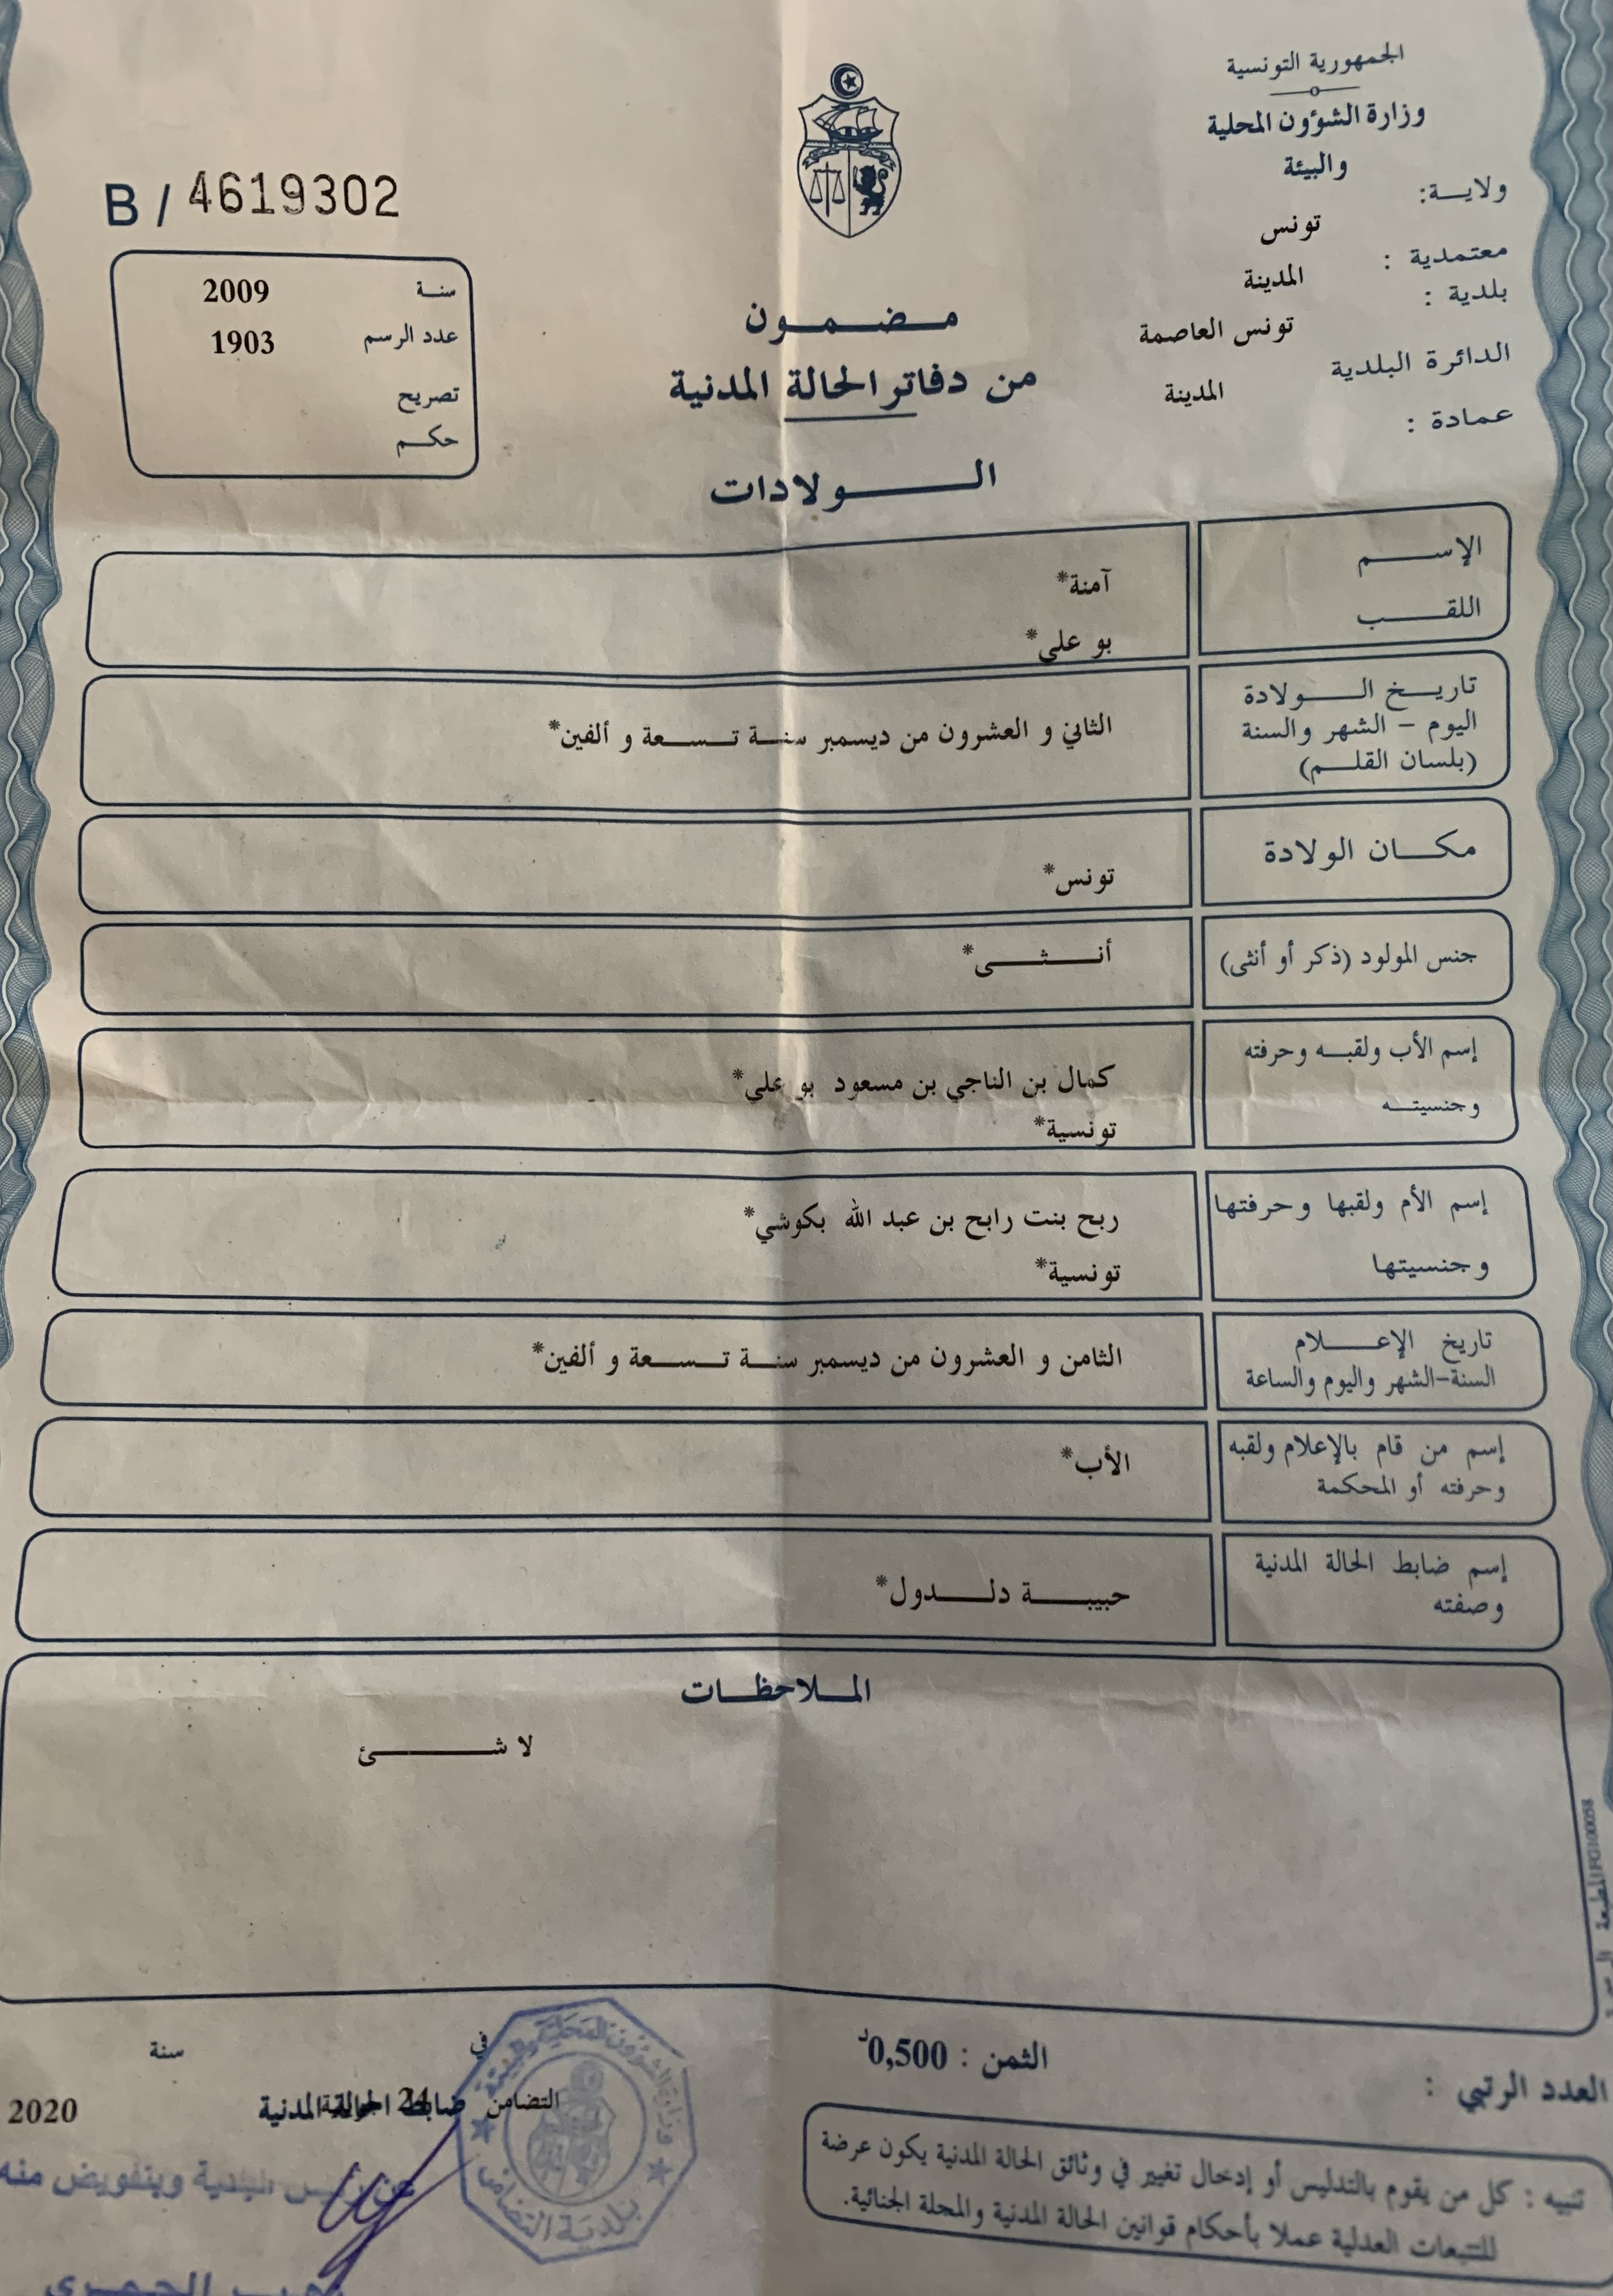 الجمهورية التونسية
وزارة الشؤون المحلية
والبيئة
ولايـــة:
تونس
معتمدية :
المدينة
بلدية :
تونس العاصمة
الدائرة البلدية
المدينة
عمادة :
B / 4619302
سنــة 2009
عدد الرسم 1903
تصريح
حكــم
مــضــمــون
من دفاتر الحالة المدنية
الــــولادات
الإســـــم آمنة*
اللقـــــب بو علي*
تاريــخ الـــولادة
اليوم – الشهر والسنة
(بلسان القلــم)
الثاني و العشرون من ديسمبر سنــة تــسـعة و ألفين*
مكـــان الولادة
تونس*
جنس المولود (ذكر أو أنثى) أنـــثـــى*
إسم الأب ولقبــه وحرفته
وجنسيتــه
كمال بن الناجي بن مسعود بو علي*
تونسية*
إسم الأم ولقبها وحرفتها
وجنسيتها
ربح بنت رابح بن عبد الله بكوشي*
تونسية*
تاريخ الإعـــلام
السنة-الشهر واليوم والساعة
الثامن و العشرون من ديسمبر سنــة تــسـعة و ألفين*
إسم من قام بالإعلام ولقبه
وحرفته أو المحكمة
الأب*
إسم ضابط الحالة المدنية
وصفته
حبيبـــة دلـــدول*
المــلاحظــات
لا شـــــئ
العدد الرتبي :
الثمن : 0,500د
في
سنة
التضامن
24
ضابط الحالة المدنية
2020
وزارة الشؤون المحلية والبيئة
بلدية التضامن
البلدية وبتفويض منه
تنبيه : كل من يقوم بالتدليس أو إدخال تغيير في وثائق الحالة المدنية يكون عرضة
للتتبعات العدلية عملا بأحكام قوانين الحالة المدنية والمجلة الجنائية.